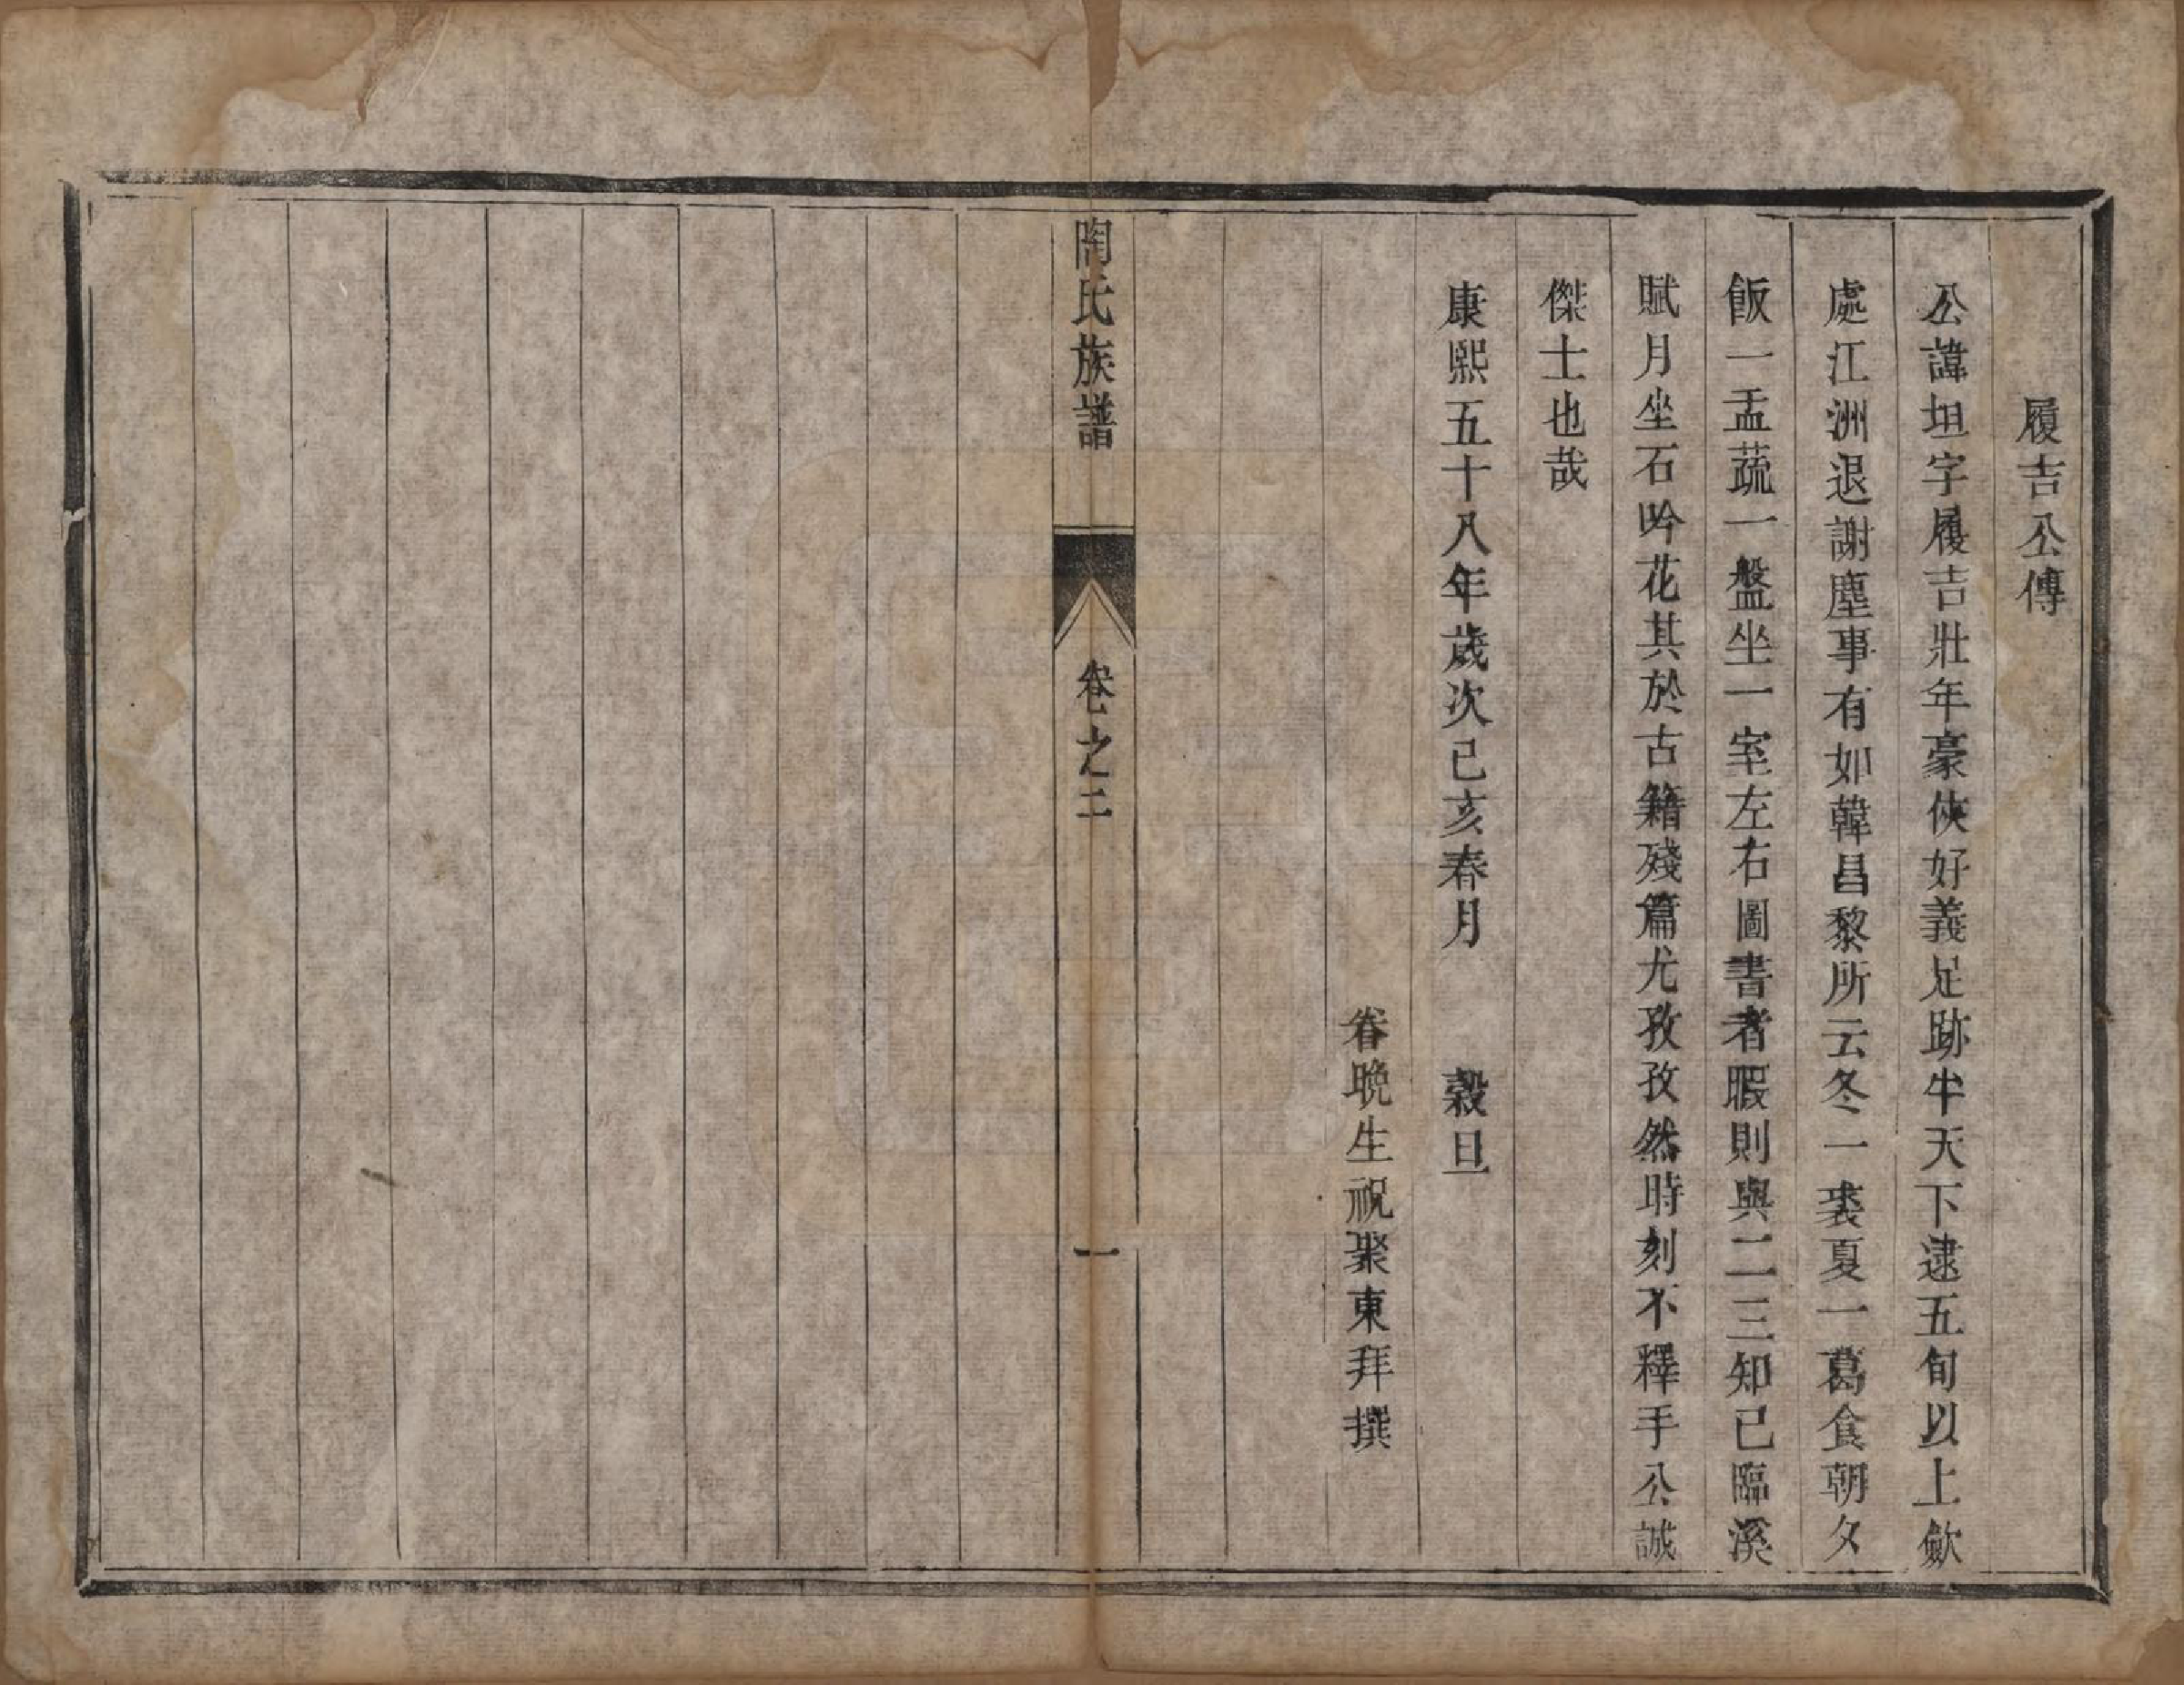 履吉公傳
公諱坦字履吉壯年豪俠好義足跡半天下逮五旬以上歛
處江洲退謝塵事有如韓昌黎所云冬一裘夏一葛食朝夕
飯一盂蔬一盤坐一室左右圖書者暇則與二三知己臨溪
賦月坐石吟花其於古籍殘篇尤孜孜然時刻不釋手公誠
傑士也哉
康熙五十八年歲次己亥春月　穀旦
眷晚生祝聚東拜撰
陶氏族譜　卷之二　一